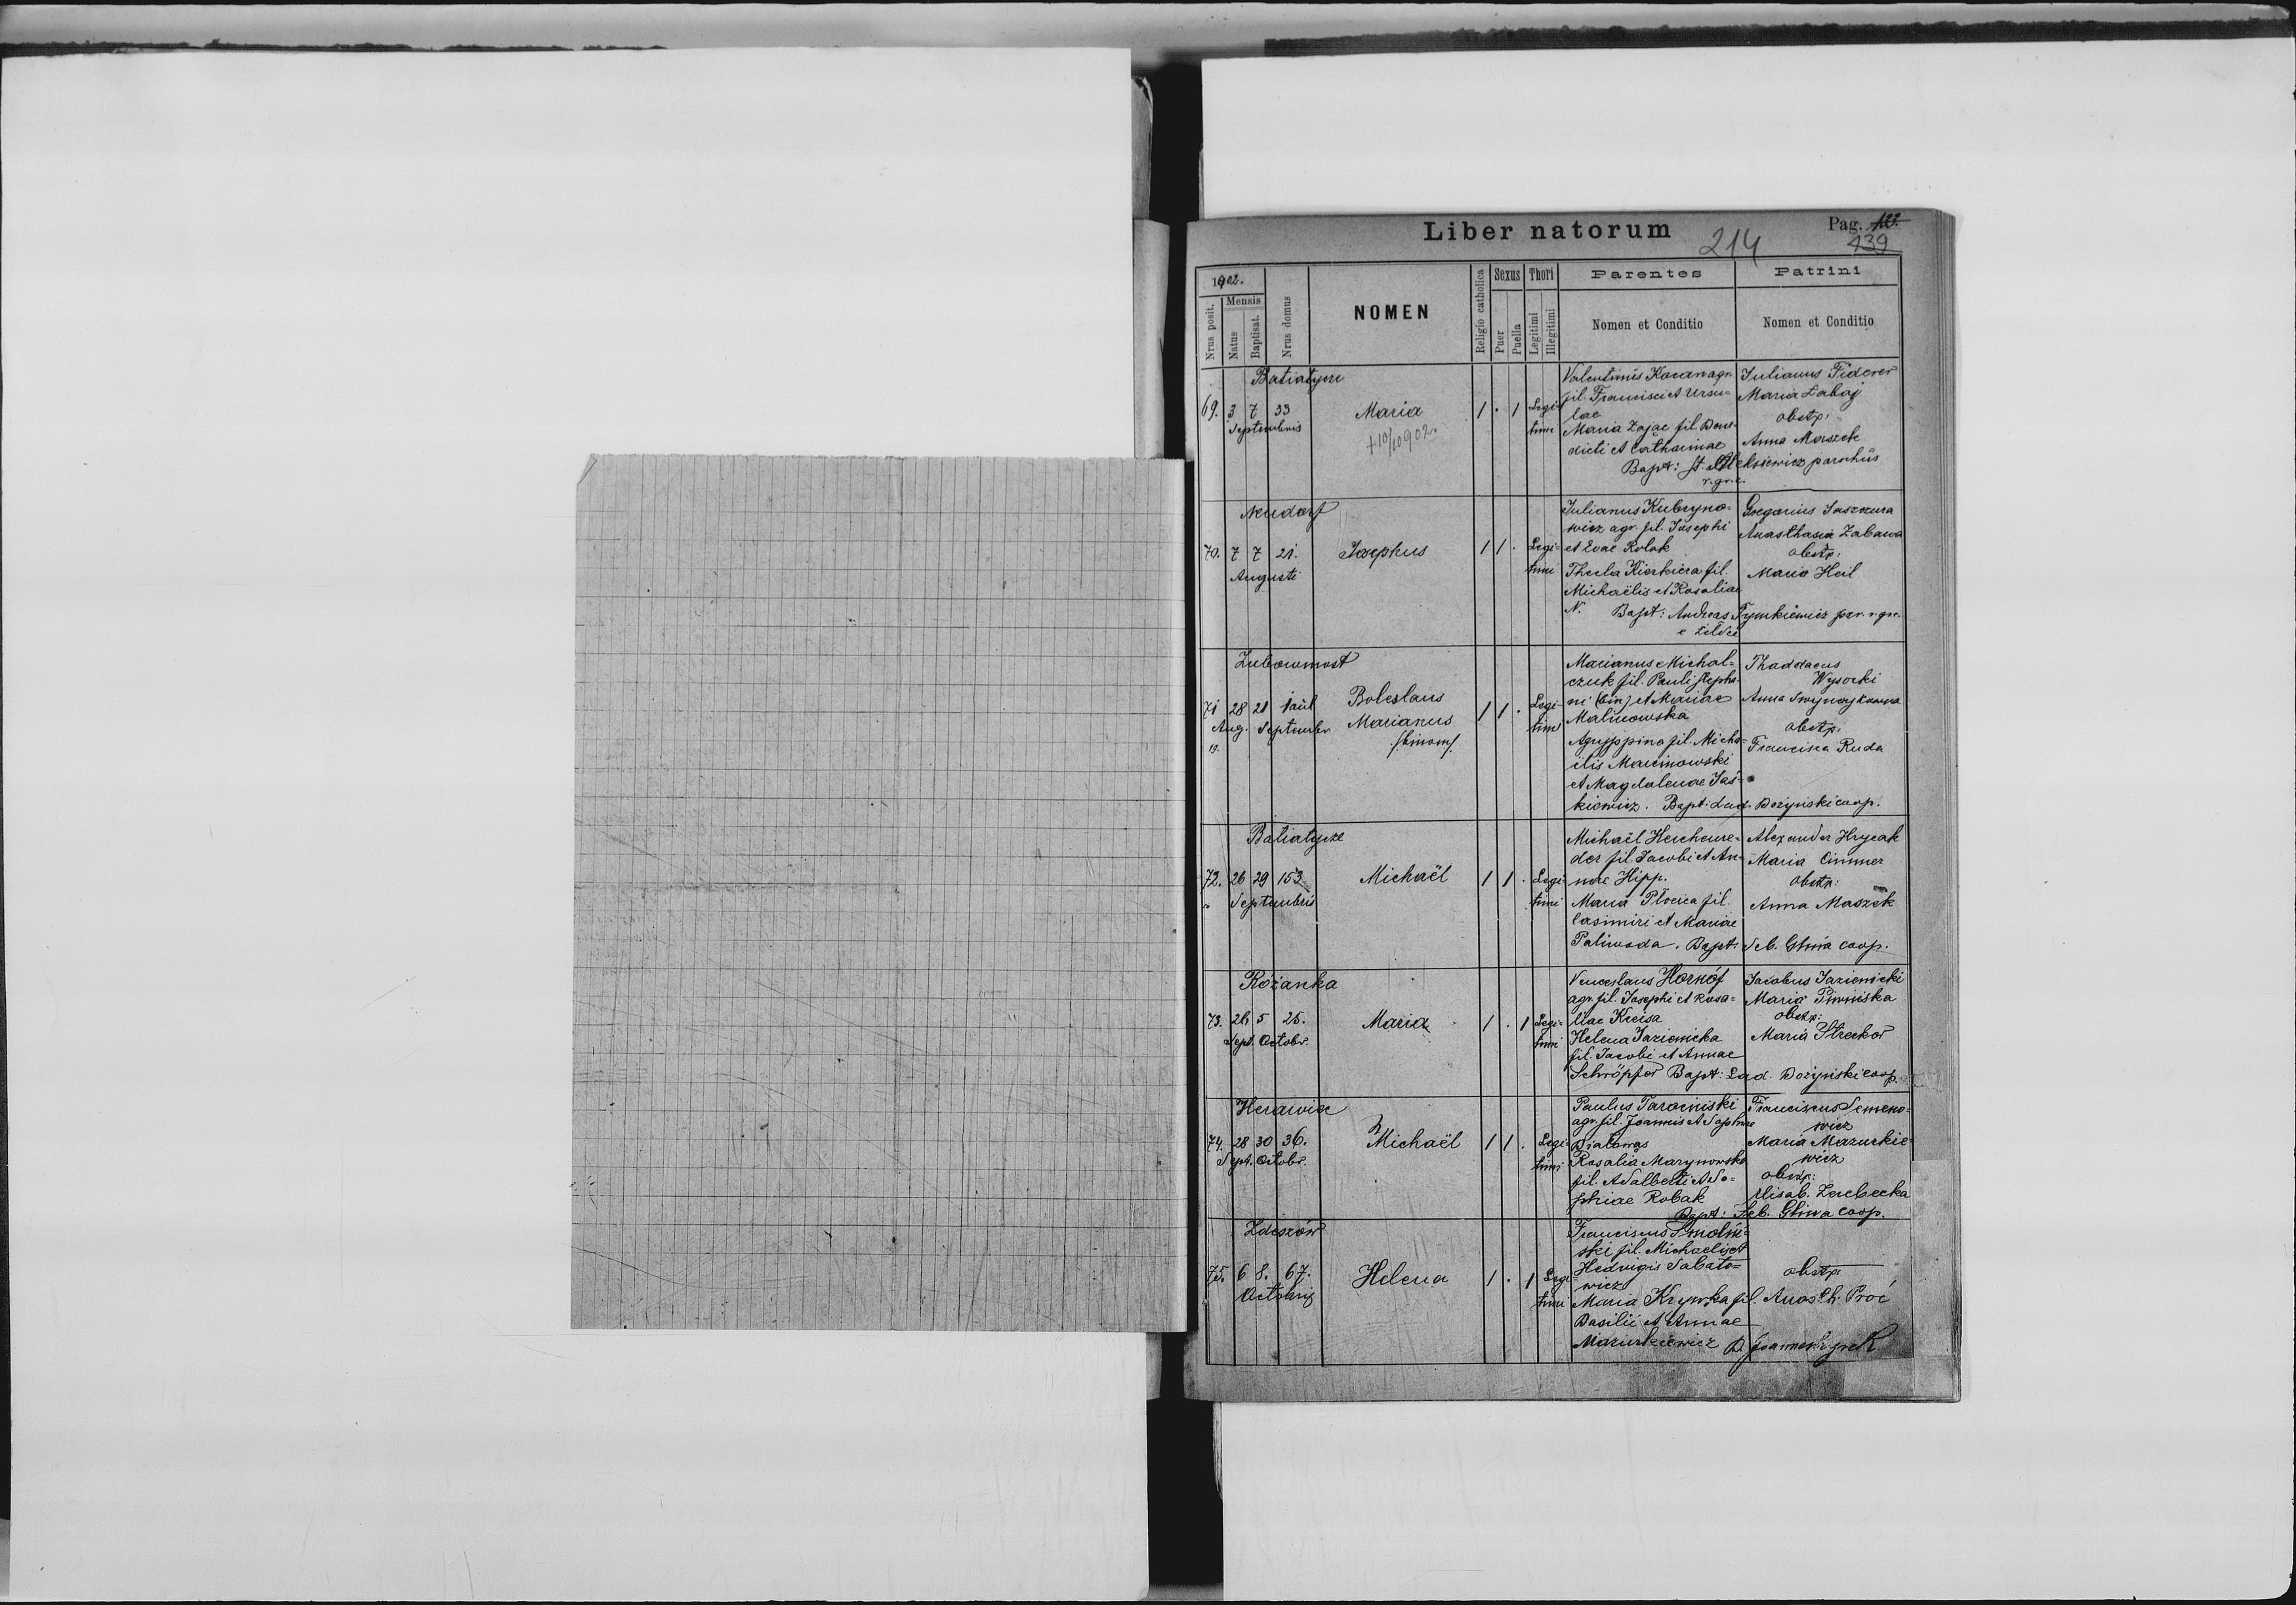 Liber natorum
Pag. 122.
214
139
1902.
Nrus posit.
Mensis
Natus
Baptisat.
Nrus domus
NOMEN
Religio catholica
Sexus
Puer
Puella
Thori
Legitimi
Illegitimi
Parentes
Nomen et Conditio
Patrini
Nomen et Conditio
Batiatycze
69. 3 7 33
Septembris
Maria
+10/10902.
1 . 1 Legi-
timi
Valentinus Kocan agr.
fil. Francisci et Ursu-
lae
Maria Zając fil. Bene-
dicti et Catharinae
Julianus Fiderer
Maria Łabaj
obstr:
Anna Maszek
Bapt: St. Aleksiewicz parochus
r. gr. c.
Neudorf
70. 7 7 21.
Augusti
Josephus
1 1 . Legi-
timi
Julianus Kubryno-
wicz agr. fil. Josephi
et Evae Rolak
Thecla Kierkiera fil.
Michaëlis et Rosaliae
N.
Gregorius
Anasthasia Zabawa
obstr:
Maria Heil
Bapt: Andreas Tymkiewicz par. r. gr.
e
Zubowmost
71 28 21
Aug. Septembr.
19.
Boleslaus
Marianus
/binom/
1 1 . Legi-
timi
Marianus Michal-
czuk fil. Pauli Stepha-
ni (bin) et Mariae
Malinowska
Agrippina fil. Micha-
ëlis Marcinowski
et Magdalenae Jaś-
kiewicz. Bapt: Lad. Dorzyński coop.
Thaddaeus
Wysocki
Anna
obstr:
Francisca Ruda
Batiatycze
72. 26 29 153
Septembris
Michaël
1 1 . Legi-
timi
Michaël Hercheure-
der fil. Jacobi et An-
nae Hipp.
Maria Płocica fil.
Casimiri et Mariae
Paliwoda. Bapt: Seb. Gliwa coop.
Alexander Hrycak
Maria Cimmer
obstr:
Anna Maszek
Różanka
73. 26 5 25.
Sept. Octobr.
Maria
1 . 1 Legi-
timi
Venceslaus Hornóf
agr. fil. Josephi et Rosa-
liae Krcisa
Helena Jazienicka
fil. Jacobi et Annae
Schröpfer Bapt: Lad. Dorzyński coop.
Jacobus Jazienicki
Maria Piwińska
obstr:
Maria Streckor
Heravice
74. 28 30 36.
Sept. Octobr.
Michaël
1 1 . Legi-
timi
Paulus Parociński
agr. fil. Joannis et Sophiae
Białowąs
Rosalia Marynowska
fil. Adalberti et So-
phiae Robak
Franciscus Semeno-
wicz
Maria Mazurkie-
wicz
obstr:
Elisab. Zerebecka
Bapt: Seb. Gliwa coop.
Zdeszów
75. 6 8. 67.
Octobris
Helena
1 . 1 Legi-
timi
Franciscus Smoliń-
ski fil. Michaelis et
Hedvigis Sabato-
wicz
Maria Krywka fil.
Basilii et Annae
Mazurkiewicz
obstr:
Anasth. Proć
B.